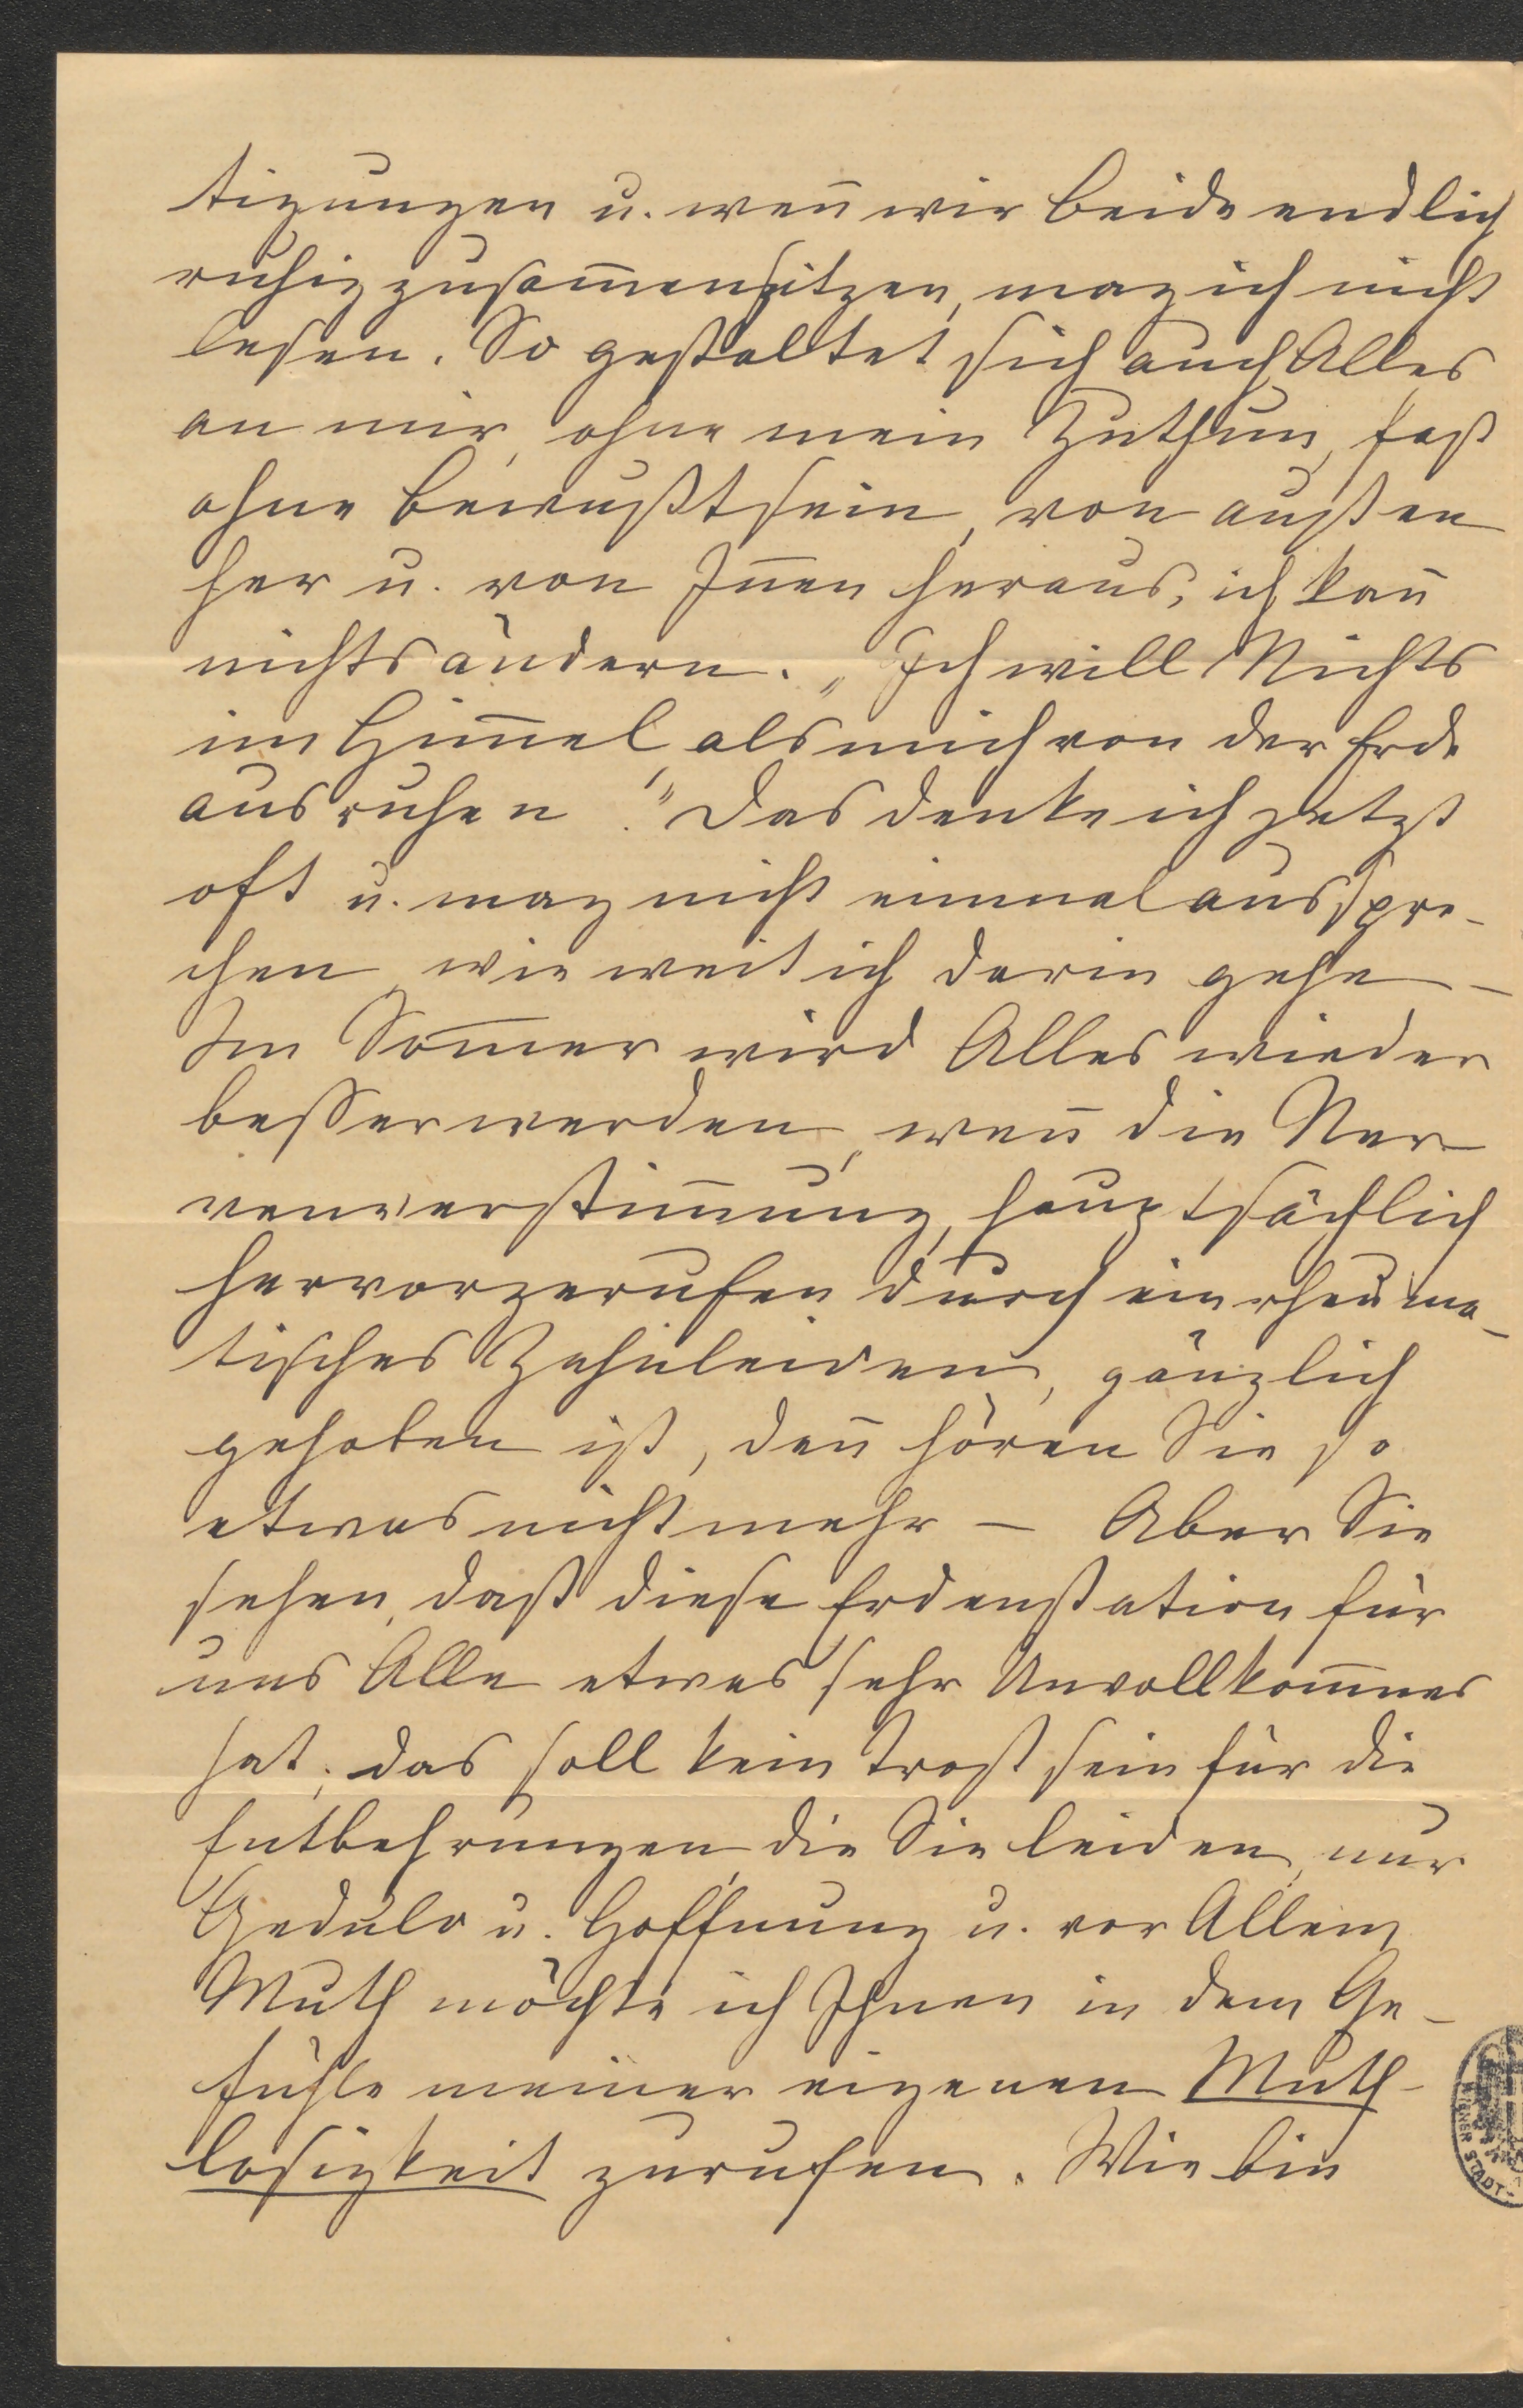 tigungen u. wen̄ wir beide endlich
ruhig zusam̄ensitzen, mag ich nicht
lesen. So gestaltet sich auch Alles
an mir, ohne mein Zuthun, fast
ohne Bewußtsein, von außen
her u. von In̄en heraus, ich kan̄
nichts ändern. „Ich will Nichts
im Him̄el, als mich von der Erde
ausruhen!" Das denke ich jetzt
oft u. mag nicht einmal ausspre-
chen, wie weit ich darin gehe –
Im Som̄er wird Alles wieder
besser werden, wen̄ die Ner-
venverstim̄ung, hauptsächlich
hervorgerufen durch ein rheuma-
tisches Zahnleiden, gänzlich
gehoben ist, dan̄ hören Sie so
etwas nicht mehr – Aber Sie
sehen, daß diese Erdenstation für
uns Alle etwas sehr Unvollkom̄nes
hat; das soll kein Trost sein für die
Entbehrungen, die Sie leiden, nur
Geduld u. Hoffnung u. vor Allem
Muth möchte ich Ihnen in dem Ge-
fühle meiner eigenen Muth-
losigkeit zurufen. Wie bin
WIENER STADT-